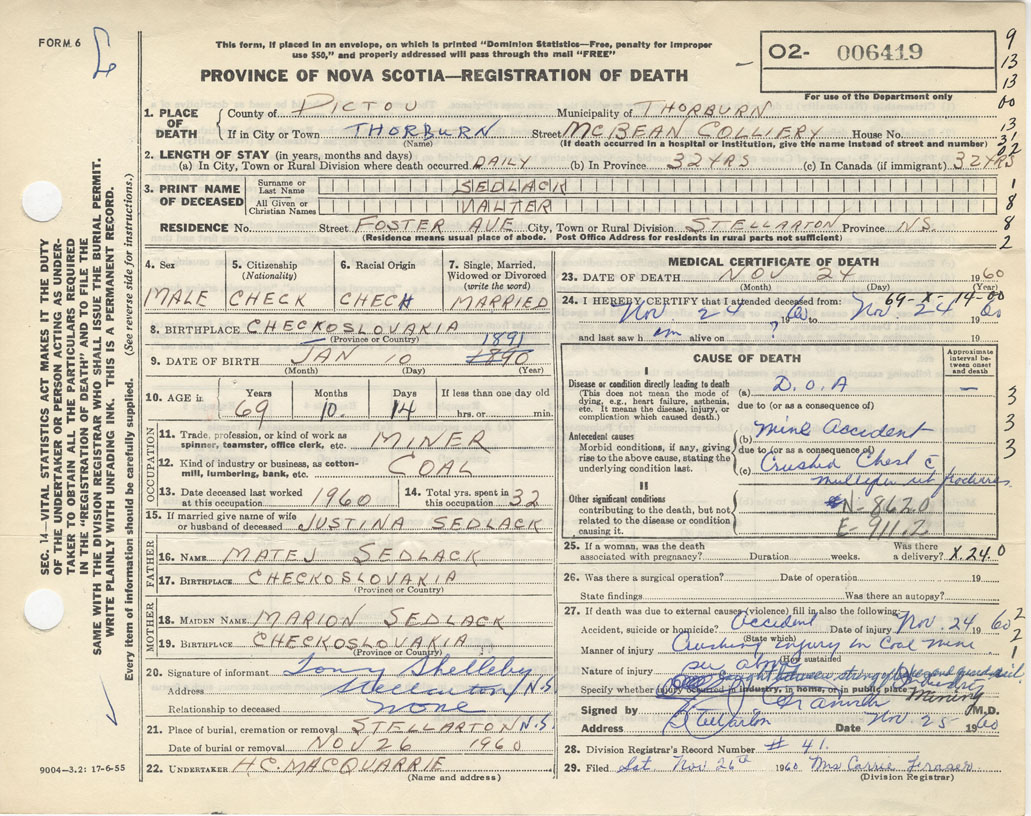 FORM 6
This form, if placed in an envelope, on which is printed "Dominion Statistics—Free, penalty for improper
use $50," and properly addressed will pass through the mail "FREE"
PROVINCE OF NOVA SCOTIA—REGISTRATION OF DEATH
O2- 006419
For use of the Department only
9
13
13
00
13
31
02
1
8
8
2
1. PLACE OF DEATH
County of PICTOU Municipality of THORBURN
If in City or Town THORBURN Street MCBEAN COLLIERY House No.
(Name) (If death occurred in a hospital or institution, give the name instead of street and number)
2. LENGTH OF STAY (in years, months and days)
(a) In City, Town or Rural Division where death occurred DAILY (b) In Province 32 YRS (c) In Canada (if immigrant) 32 YRS
3. PRINT NAME OF DECEASED
Surname or Last Name SEDLACK
All Given or Christian Names VALTER
RESIDENCE No. Street FOSTER AVE City, Town or Rural Division STELLARTON Province N.S.
(Residence means usual place of abode. Post Office Address for residents in rural parts not sufficient)
4. Sex MALE
5. Citizenship (Nationality) CHECK
6. Racial Origin CHECH
7. Single, Married, Widowed or Divorced (write the word) MARRIED
8. BIRTHPLACE CHECKOSLOVAKIA
(Province or Country)
1891
9. DATE OF BIRTH JAN 10 1890
(Month) (Day) (Year)
10. AGE is Years 69 Months 10. Days 14 If less than one day old
hrs. or min.
OCCUPATION
11. Trade, profession, or kind of work as spinner, teamster, office clerk, etc. MINER
12. Kind of industry or business, as cotton-mill, lumbering, bank, etc. COAL
13. Date deceased last worked at this occupation 1960
14. Total yrs. spent in this occupation 32
15. If married give name of wife or husband of deceased JUSTINA SEDLACK
FATHER
16. NAME MATEJ SEDLACK
17. BIRTHPLACE CHECKOSLOVAKIA
(Province or Country)
MOTHER
18. MAIDEN NAME MARION SEDLACK
19. BIRTHPLACE CHECKOSLOVAKIA
(Province or Country)
20. Signature of informant Tony Shelleby
Address Stellarton N.S.
Relationship to deceased None
21. Place of burial, cremation or removal STELLARTON N.S.
Date of burial or removal NOV 26 1960
22. UNDERTAKER H.C. MACQUARRIE
(Name and address)
MEDICAL CERTIFICATE OF DEATH
23. DATE OF DEATH NOV 24 1960
(Month) (Day) (Year)
69-X-14-00
24. I HEREBY CERTIFY that I attended deceased from:
Nov. 24 1960 to Nov. 24 1960
and last saw him alive on ? 19
CAUSE OF DEATH
Approximate interval between onset and death
I
Disease or condition directly leading to death
(This does not mean the mode of dying, e.g., heart failure, asthenia, etc. It means the disease, injury, or complication which caused death.)
(a) D.O.A —
due to (or as a consequence of)
Antecedent causes
Morbid conditions, if any, giving rise to the above cause, stating the underlying condition last.
(b) Mine Accident
due to (or as a consequence of)
(c) Crushed Chest c
multiple rib fractures
II
Other significant conditions contributing to the death, but not related to the disease or condition causing it.
N-862.0
E-911.2
3
3
3
3
25. If a woman, was the death associated with pregnancy? Duration weeks. Was there a delivery? X.24.0
26. Was there a surgical operation? Date of operation 19
State findings Was there an autopsy?
27. If death was due to external causes (violence) fill in also the following:
Accident, suicide or homicide? Accident Date of injury Nov. 24 1960
(State which)
2
2
1
Manner of injury Crushing injury in Coal Mine
(How sustained)
Nature of injury per above
Specify whether injury occurred in industry, in home, or in public place Mining
Signed by M.D.
Address Stellarton Date Nov. 25 1960
28. Division Registrar's Record Number # 41.
29. Filed Sat. Nov 26th 1960 Mrs Carrie Fraser
(Division Registrar)
SEC. 14—VITAL STATISTICS ACT MAKES IT THE DUTY
OF THE UNDERTAKER OR PERSON ACTING AS UNDER-
TAKER TO OBTAIN ALL THE PARTICULARS REQUIRED
IN THE "REGISTRATION OF DEATH" AND TO FILE THE
SAME WITH THE DIVISION REGISTRAR WHO SHALL ISSUE THE BURIAL PERMIT.
WRITE PLAINLY WITH UNFADING INK. THIS IS A PERMANENT RECORD.
Every item of information should be carefully supplied. (See reverse side for instructions.)
9004—3.2: 17-6-55